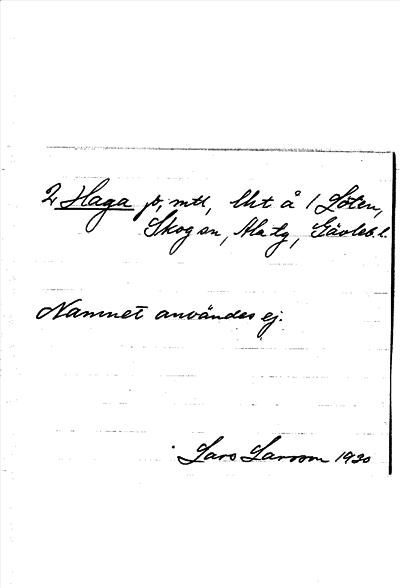 2 Haga p, mtl, Ut å 1 Löten,
Skog sn, Ala tg, Gävleb. l.
Namnet användes ej.
Lars Larsson 1930